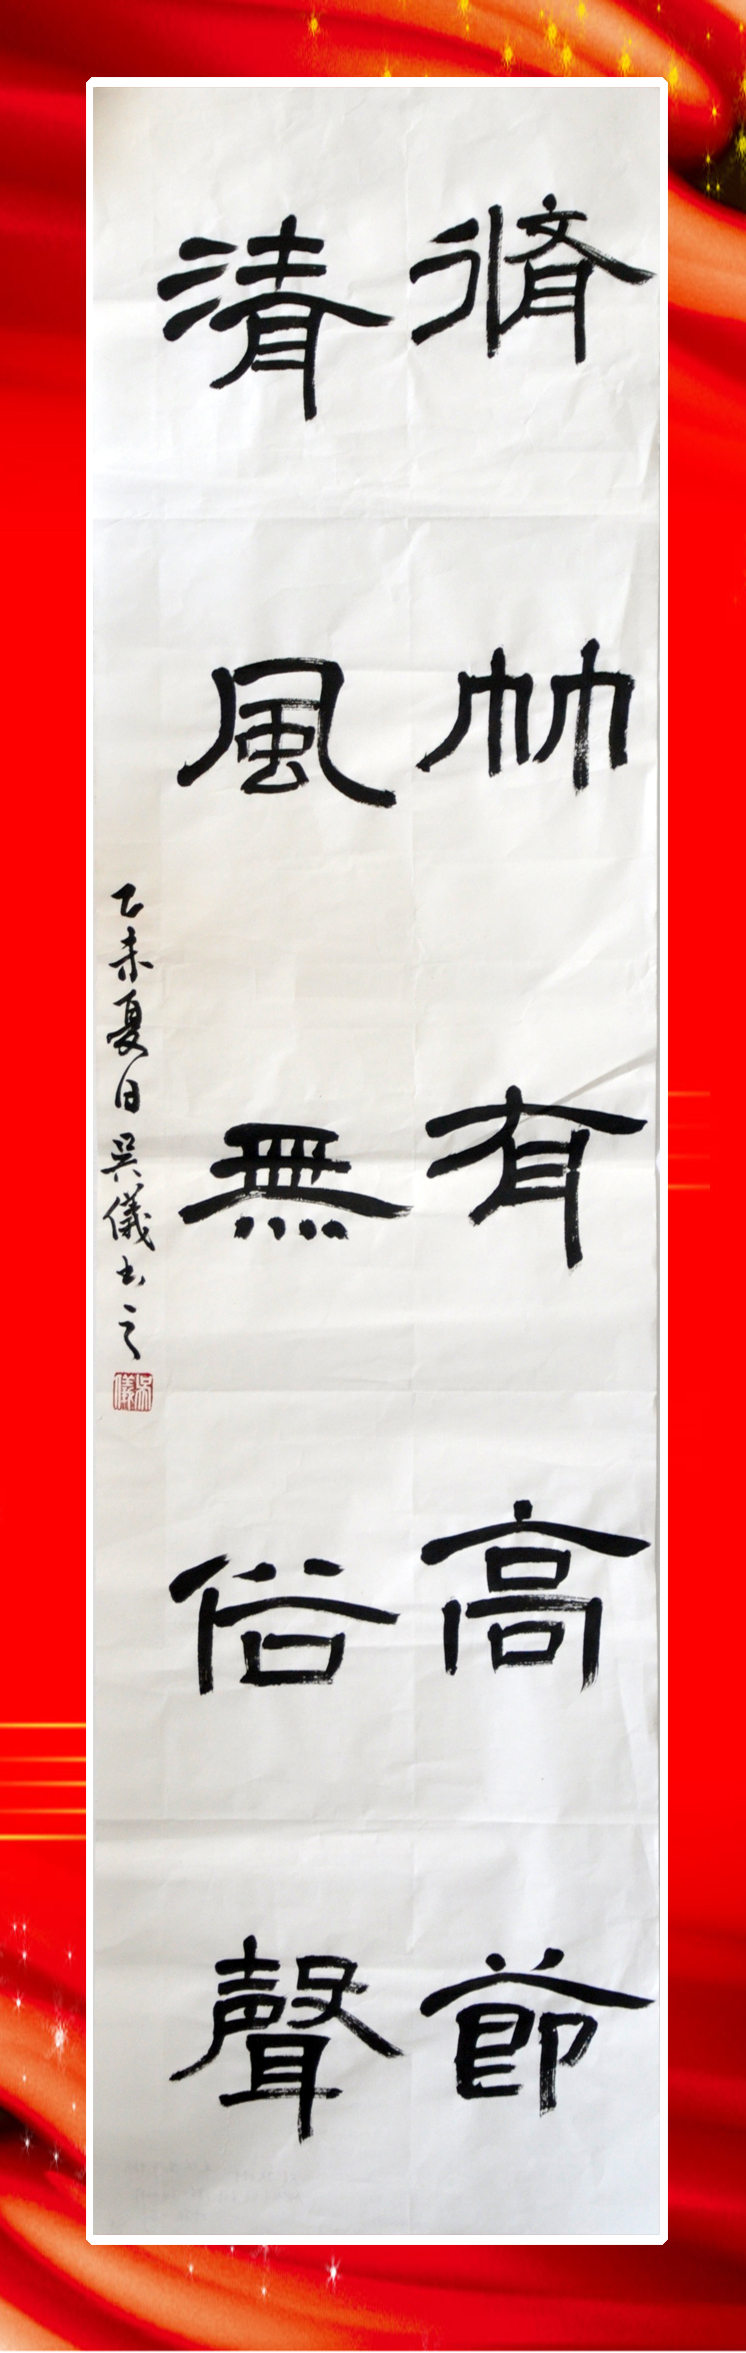 脩竹有高節
清風無俗聲
乙未夏日吳儀書之
吳儀